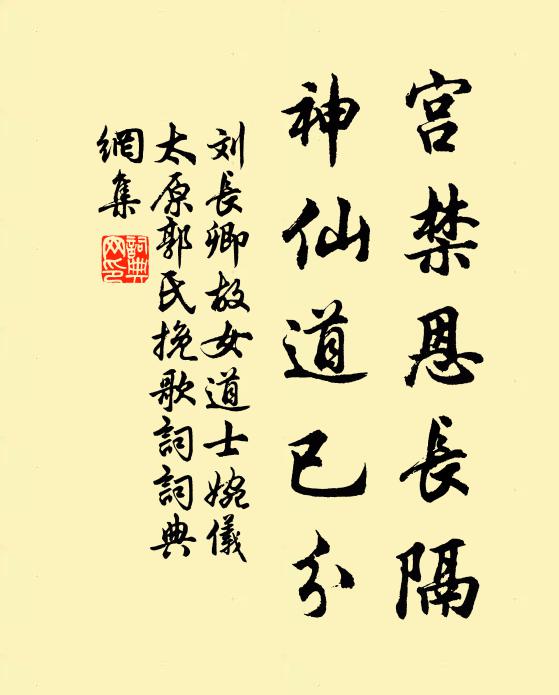 宫禁恩長隔
神仙道已分
刘長卿故女道士婉儀
太原郭氏挽歌詞詞典
網集
詞典網印